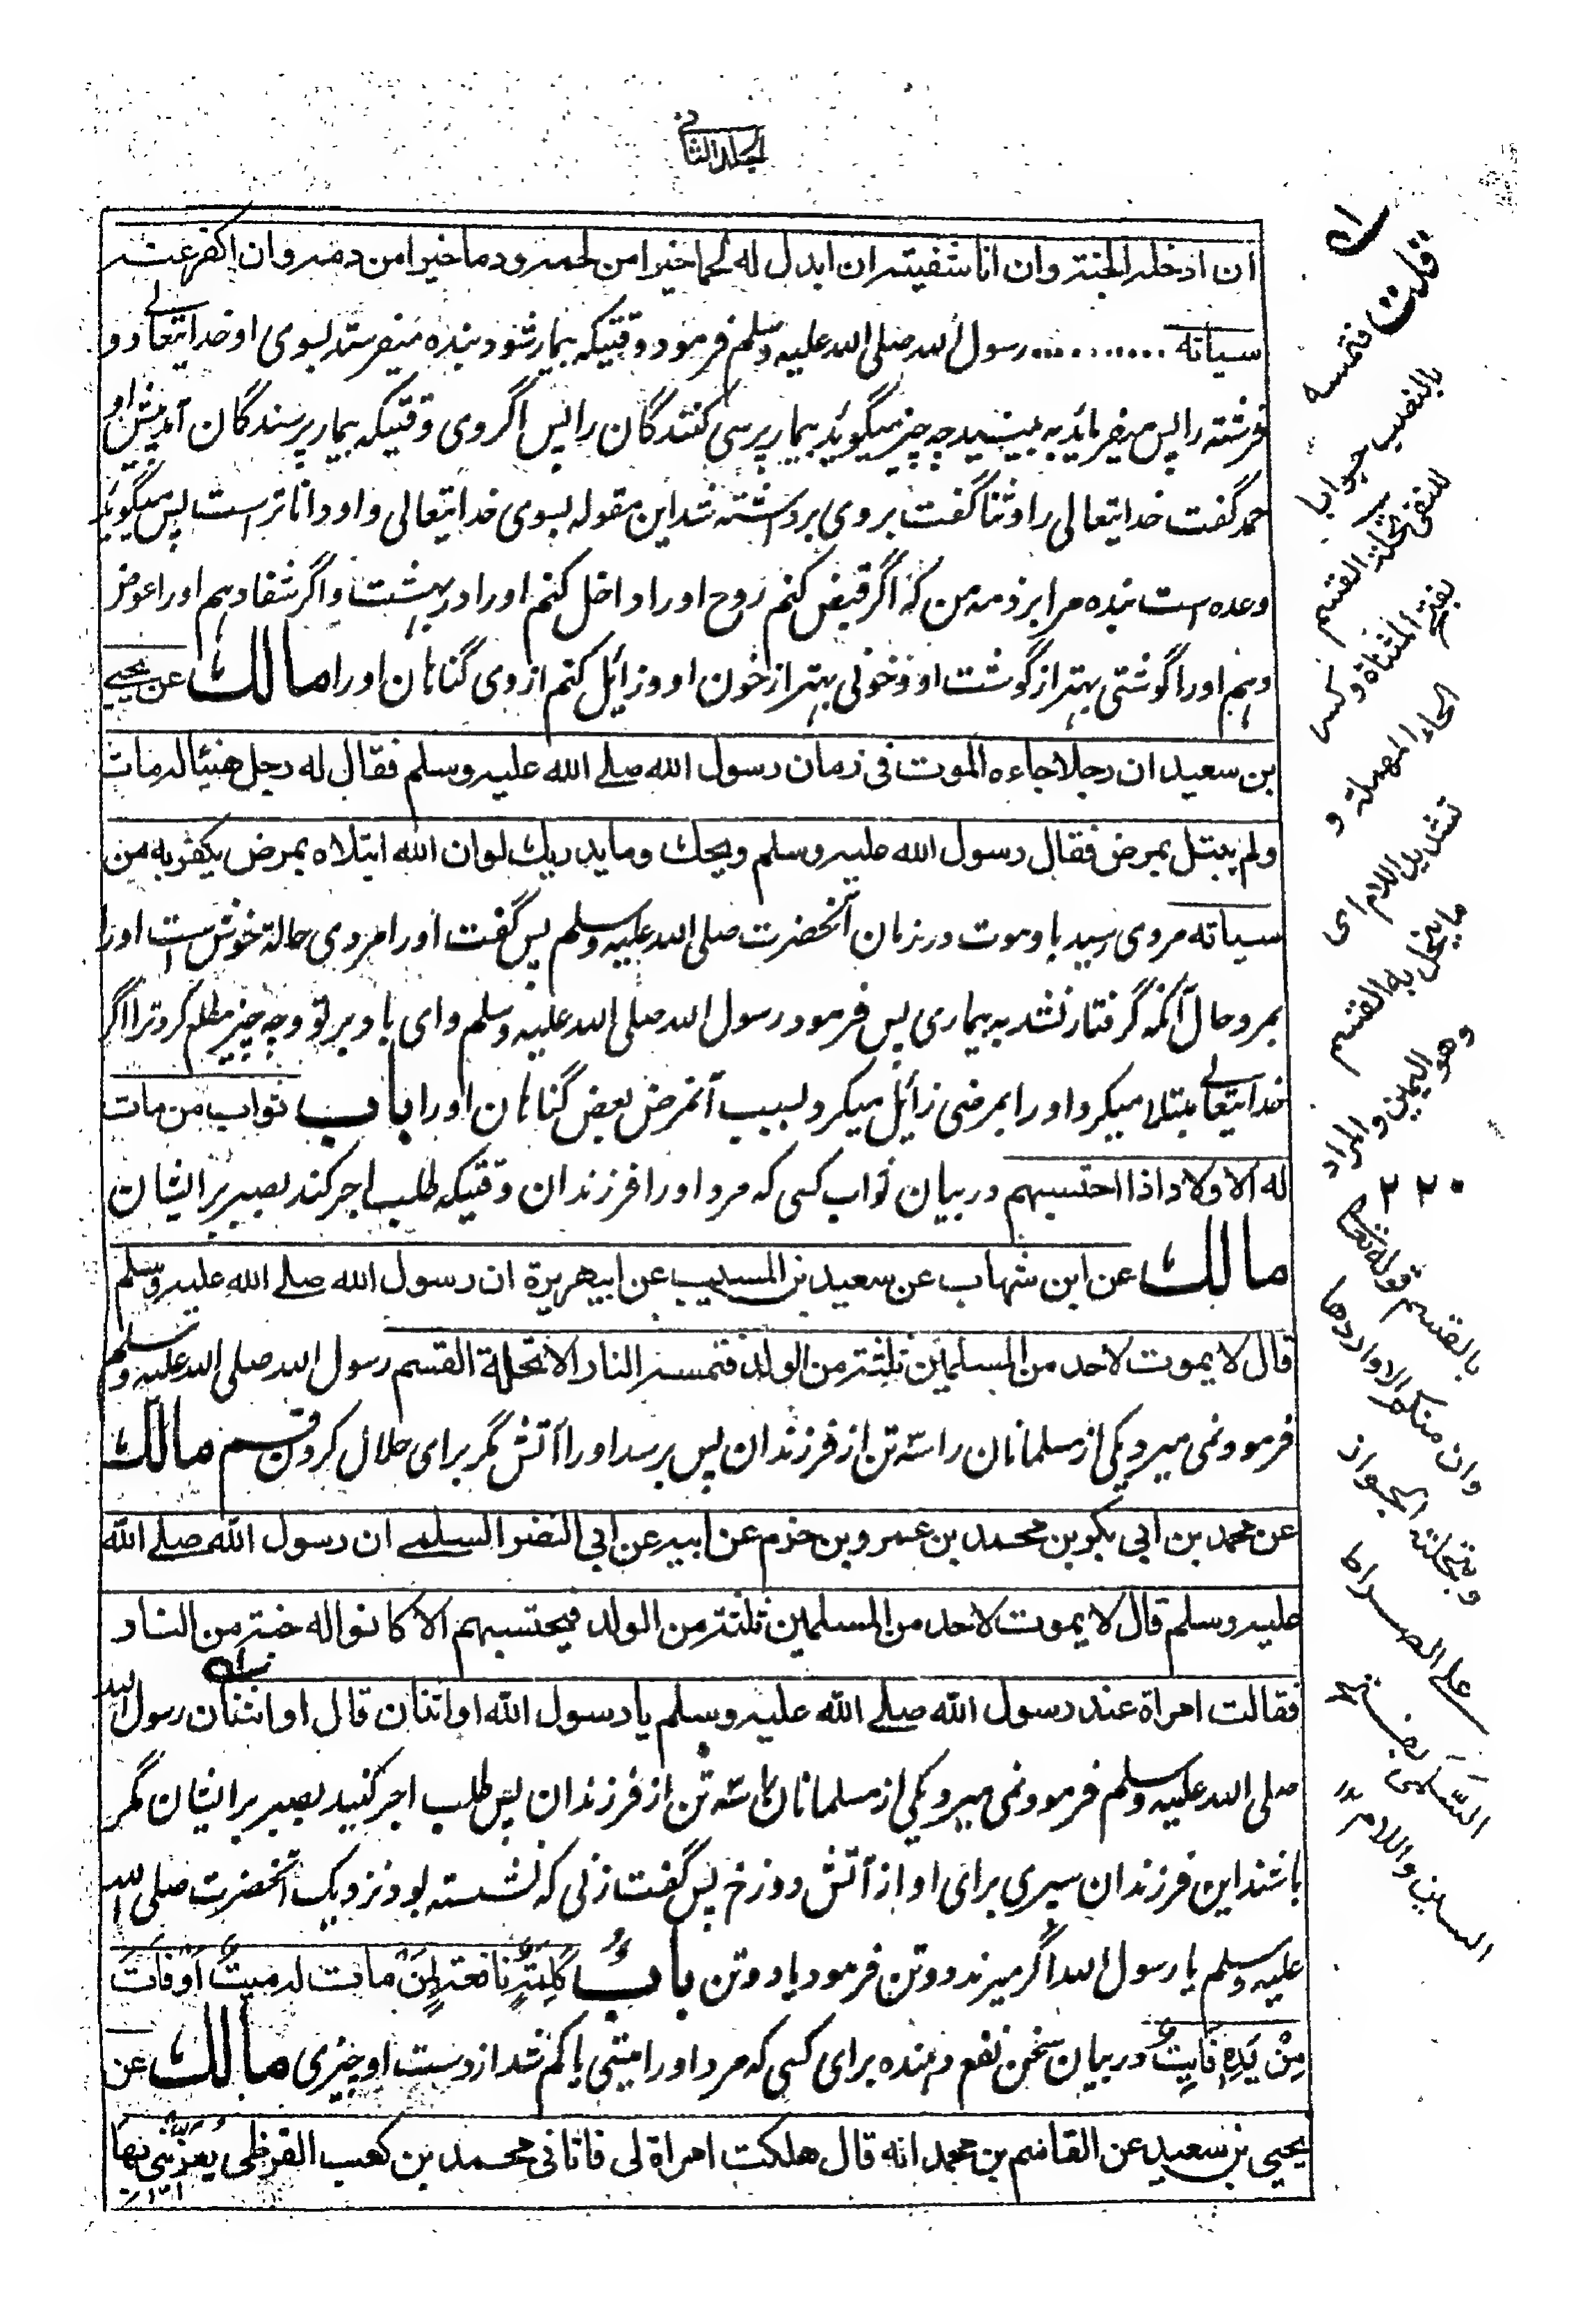 الجلد الثانی
ان ادخله الجنة وان انا شفیته ان ابدل له لحما خیرا من لحمه ودما خیرا من دمه وان اکفر عنه
سیاته ........... رسول الله صلی الله علیه وسلم فرمود وقتیکه بیمار شود بنده میفرستد بسوی او خدایتعالی دو
فرشته را پس میفرماید به بینید چه چیز میگوید بیمار پرسی کنندگان را پس اگر وی وقتیکه بیمار پرسندگان آمد پیش او
حمد گفت خدایتعالی را و ثنا گفت بروی برداشته شد این مقوله بسوی خدایتعالی و او داناتر است پس میگوید
وعده است بنده مرا بر ذمه من که اگر قبض کنم روح او را داخل کنم او را در بهشت و اگر شفا دهم او را عوض
دهم او را گوشتی بهتر از گوشت او و خونی بهتر از خون او و زائل کنم از وی گناهان او را مالك عن یحیی
بن سعید ان رجلا جاءه الموت فی زمان رسول الله صلے الله علیه وسلم فقال له رجل هنیئا له مات
ولم یبتل بمرض فقال رسول الله علیه وسلم ویحك وما یدریك لو ان الله ابتلاه بمرض یکفر به من
سیاته مروی رسید باو موت در زمان آنحضرت صلی الله علیه وسلم پس گفت او را مردی حالة خوش است او را
بمرد حال آنکه گرفتار نشد به بیماری پس فرمود رسول الله صلی الله علیه وسلم وای باد بر تو و چه چیز مطلع کرد ترا اگر
خدایتعالی مبتلا میکرد او را بمرضی زائل میکرد بسبب آنمرض بعض گناهان او را باب ثواب من مات
له الاولاد اذا احتسبهم در بیان ثواب کسی که مرد او را فرزندان وقتیکه طلب اجر کند بصبر بر ایشان
مالك عن ابن شهاب عن سعید بن المسیب عن ابیهریرة ان رسول الله صلے الله علیه وسلم
قال لا یموت لاحد من المسلمین ثلثة من الولد فتمسه النار الا تحلة القسم رسول الله صلی الله علیه وسلم
فرمود نمی میرد یکی از مسلمانان را سه تن از فرزندان پس برسد او را آتش مگر برای حلال کردن قسم مالك
عن محمد بن ابی بکر بن محمد بن عمرو بن حزم عن ابیه عن ابی النضر السلمے ان رسول الله صلے الله
علیه وسلم قال لا یموت لاحد من المسلمین ثلثة من الولد فیحتسبهم الا کانوا له جنة من النار
فقالت امراة عند رسول الله صلے الله علیه وسلم یا رسول الله او اثنان قال او اثنان رسول الله
صلی الله علیه وسلم فرمود نمی میرد یکی از مسلمانان را سه تن از فرزندان پس طلب اجر کنید بصبر بر ایشان مگر
باشند این فرزندان سپری برای او از آتش دوزخ پس گفت زنی که نشسته بود نزدیک آنحضرت صلی الله
علیه وسلم یا رسول الله اگر میرند دو تن فرمود یا دو تن بابٌ کَلِمَةٍ نافعة لِمَنْ ماتت له میتٌ اَوْ فَاتَ
مِنْ یَدِهِ فَایِتٌ در بیان سخن نفع دهنده برای کسی که مرد او را میتی یا گم شد از دست او چیزی مالك عن
یحیی بن سعید عن القاسم بن محمد انه قال هلکت امراة لی فاتانی محمد بن کعب القرظی یُعَزِّیْنِی بِهَا
قلت فتمسه
بالنصب جوابا
للنفی تحلة القسم
بفتح المثناة وکسر
الحاء المهملة و
تشدید اللام ای
ما ینحل به القسم
وهو الیمین والمراد
بالقسم قوله تعالی
وان منکم الا واردها
وبتحلة الجواز
علی الصراط
السَّلَمی بفتح
السین واللام
۲۲۰